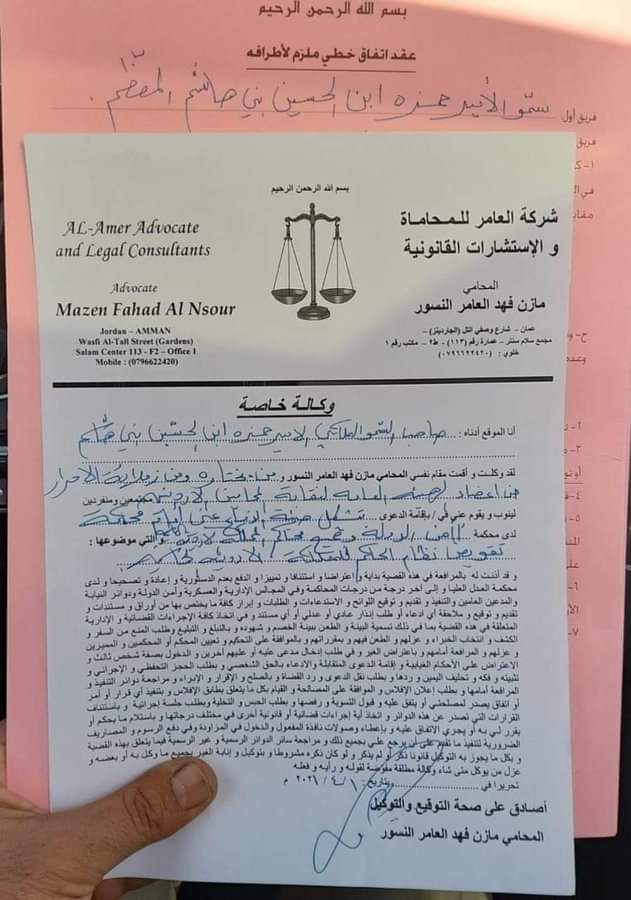 بسم الله الرحمن الرحيم
عقد اتفاق خطي ملزم لأطرافه
فريق أول
سمو الأمير حمزه ابن الحسين بني هاشم المعظم
فريق
بسم الله الرحمن الرحيم
AL-Amer Advocate
and Legal Consultants
Advocate
Mazen Fahad Al Nsour
Jordan – AMMAN
Wasfi Al-Tall Street (Gardens)
Salam Center 113 - F2 – Office 1
Mobile : (0796622420)
شركة العامر للمحاماة
و الإستشارات القانونية
المحامي
مازن فهد العامر النسور
عمان – شارع وصفي التل (الجاردينز) –
مجمع سلام سنتر – عمارة رقم (١١٣) - ط٢ – مكتب رقم ١
خلوي : (٠٧٩٦٦٢٢٤٢٠)
وكالة خاصة
أنا الموقع أدناه : صاحب السمو الملكي الامير حمزه ابن الحسين بني هاشم
لقد وكلت و أقمت مقام نفسي المحامي مازن فهد العامر النسور و من يختاره ومن زملائه الاحرار
من اعضاء الهيئة العامة لنقابة محامين الاردنيين مجتمعين ومنفردين
لينوب و يقوم عني في / بإقامة الدعوى
لدى محكمة أمن الدولة والتي موضوعها :
تقويض نظام الحكم للمملكة الاردنية
و قد أذنت له بالمرافعة في هذه القضية بداية و إعتراضا و استئنافا و تمييزا و الدفع بعدم الدستورية و إعادة و تصحيحا و لدى
محكمة العدل العليا و إلى آخر درجة من درجات المحاكمة وفي المجالس الإدارية والعسكرية وأمن الدولة ودوائر النيابة
و المدعين العامين والتنفيذ و تقديم و توقيع اللوائح و الاستدعاءات و الطلبات و إبراز كافة ما يختص بها من أوراق و مستندات و
توقيع و ملاحقة أي ادعاء أو طلب إنذار عادي أو عدلي أو أي مستند و في اتخاذ كافة الإجراءات القضائية و الإدارية
المتعلقة في هذه القضية بما في ذلك تسمية البينة و الطعن ببينة الخصم و شهوده و بالتبلغ و التبليغ وطلب المنع من السفر و
الكشف و انتخاب الخبراء و عزلهم و الطعن فيهم و بمقرراتهم و بالموافقة على التحكيم و تعيين المحكم أو المحكمين و المميزين
و عزلهم و المرافعة أمامهم و باعتراض الغير و في طلب إدخال مدعى عليه أو عليهم آخرين و الدخول بصفة شخص ثالث و
الاعتراض على الأحكام الغيابية و إقامة الدعوى المتقابلة والادعاء بالحق الشخصي و بطلب الحجز التحفظي و الإجرائي و
تثبيته و فكه و تحليف اليمين و ردها و بطلب نقل الدعوى و رد القضاة و بالصلح و الإقرار و الإبراء و مراجعة دوائر التنفيذ و
المرافعة أمامها و بطلب إعلان الإفلاس و الموافقة على المصالحة و القيام بكل ما يتعلق بطابق الإفلاس و بتنفيذ أي قرار أو أمر
أو اتفاق يصدر لمصلحتي أو يتفق عليه و قبول التسوية و رفضها و بطلب الحبس و التخلية و بطلب جلسة إجرائية و باستئناف
القرارات التي تصدر عن هذه الدوائر و اتخاذ أية إجراءات قضائية أو قانونية أخرى في مختلف درجاتها و باستلام ما يحكم أو
يقرر لي به أو يجري الاتفاق عليه و بإعطاء وصولات نافذة المفعول و الدخول في المزاودة وفي دفع الرسوم و المصاريف
الضرورية للتنفيذ ما تقدم على أن يرجع علي بجميع ذلك و مراجعة سائر الدوائر الرسمية و غير الرسمية فيما يتعلق بهذه القضية
و بكل ما يجوز به التوكيل قانونا ذكر أو لم يذكر و لو كان ذكره مشروطا و بتوكيل و إنابة الغير بجميع ما وكل به أو بعضه و
عزل من يوكل متى شاء وكالة مطلقة مفوضة لقوله و رأيه و فعله
تحريرا في بتاريخ: ١ / ٤ / ٢٠٢١ م
أصادق على صحة التوقيع والتوكيل
المحامي مازن فهد العامر النسور